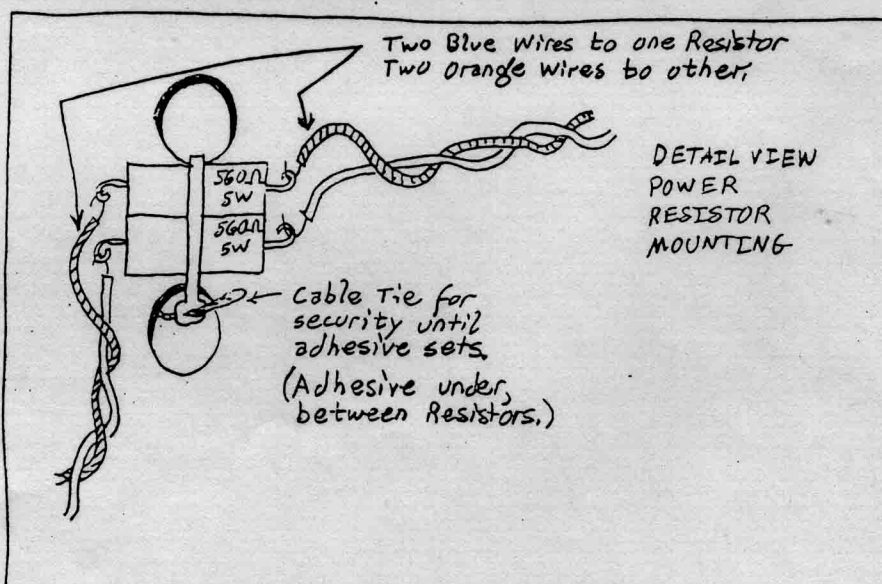 Two Blue Wires to one Resistor
Two Orange Wires to other.
DETAIL VIEW
POWER
RESISTOR
MOUNTING
560Ω
5W
560Ω
5W
Cable Tie for
security until
adhesive sets.
(Adhesive under,
between Resistors.)